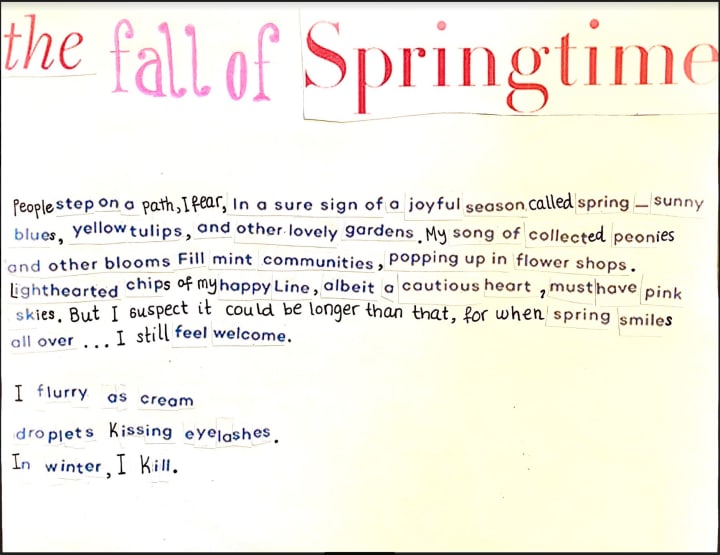 the fall of Springtime
People step on a path, I fear, In a sure sign of a joyful season called spring — sunny
blues, yellow tulips, and other lovely gardens. My song of collected peonies
and other blooms Fill mint communities, popping up in flower shops.
Lighthearted chips of my happy Line, albeit a cautious heart, must have pink
skies. But I suspect it could be longer than that, for when spring smiles
all over ... I still feel welcome.
I flurry as cream
droplets Kissing eyelashes.
In winter, I Kill.